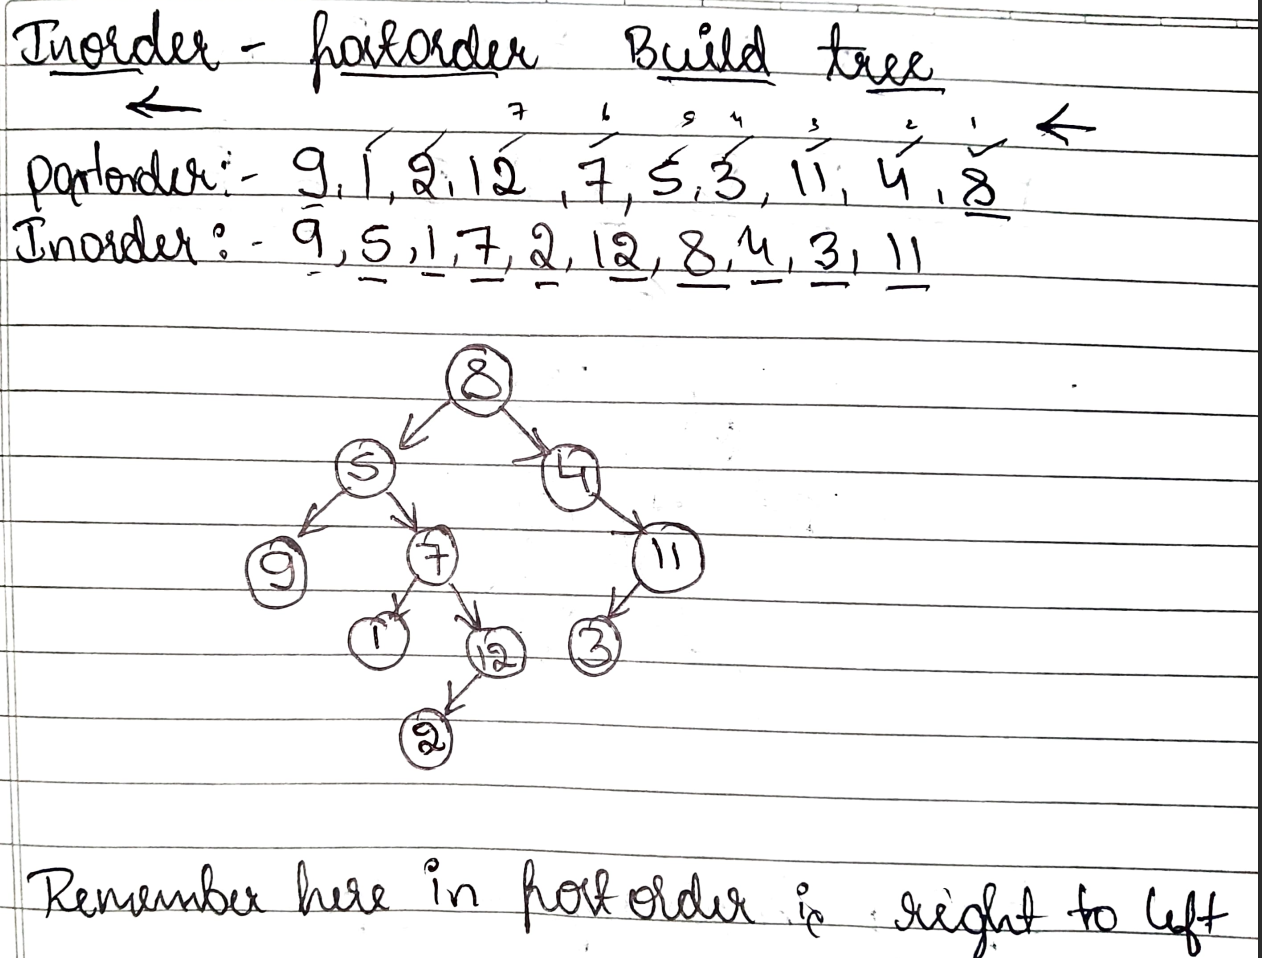 Inorder - postorder Build tree
←
7 6 5 4 3 2 1 ←
postorder:- 9, 1, 2, 12, 7, 5, 3, 11, 4, 8
Inorder:- 9, 5, 1, 7, 2, 12, 8, 4, 3, 11
8
5 4
9 7 11
1 12 3
2
Remember here in post order is right to left